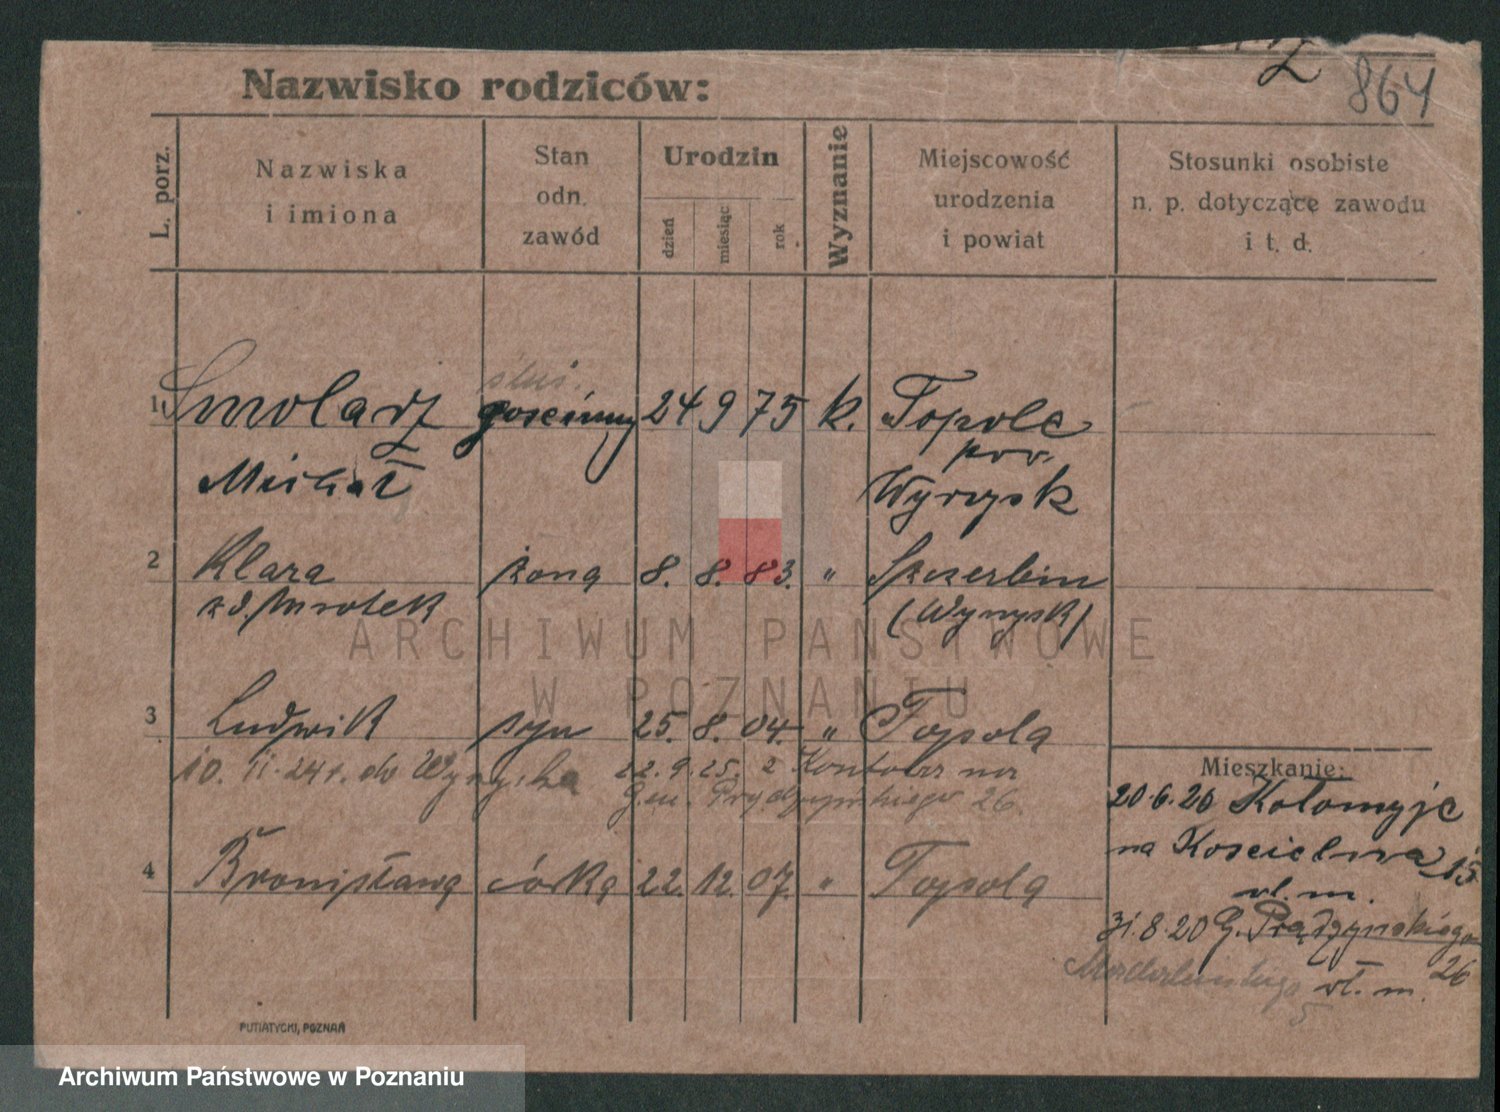 864
Nazwisko rodziców:
L. porz.
Nazwiska
i imiona
Stan
odn.
zawód
Urodzin
dzień
miesiąc
rok
Wyznanie
Miejscowość
urodzenia
i powiat
Stosunki osobiste
n. p. dotyczące zawodu
i t. d.
1 Smolarz gościnny 24 9 75 k. Topole
Michał pow. Wyrzysk
2 Klara żona 8. 8. 83. " Szczerbin
z d. Mrotek (Wyrzysk)
3 Ludwik syn 25. 8. 04. " Topola
10. 11. 24 r. do Wyrzyska 22. 9. 25. z
Gen. Prądzyńskiego 26.
4 Bronisława córka 22. 12. 07. " Topola
Mieszkanie:
20.6.20 Kołomyje
na Kościelna 15
wł. m.
31.8.20 G. Prądzyńskiego
26
wł. m.
5
PUTIATYCKI, POZNAŃ
ARCHIWUM PAŃSTWOWE
W POZNANIU
Archiwum Państwowe w Poznaniu